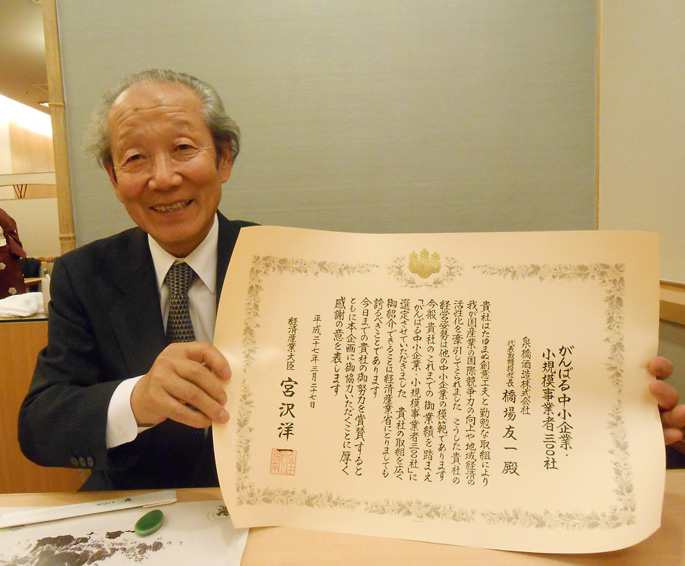 がんばる中小企業・
小規模事業者三〇〇社
泉橋酒造株式会社
代表取締役社長 橋場友一 殿
貴社はたゆまぬ創意工夫と勤勉な取組により
我が国産業の国際競争力の向上や地域経済の
活性化を牽引してこられました こうした貴社の
経営姿勢は他の中小企業の模範であります
今般 貴社のこれまでの御業績を踏まえ
「がんばる中小企業・小規模事業者三〇〇社」に
選定させていただきました 貴社の取組を広く
御紹介できることは経済産業省にとりましても
誇るべきことであります
今日までの貴社の御努力を賞賛すると
ともに本企画に御協力いただくことに厚く
感謝の意を表します
平成二十七年三月二十七日
経済産業大臣 宮沢洋一